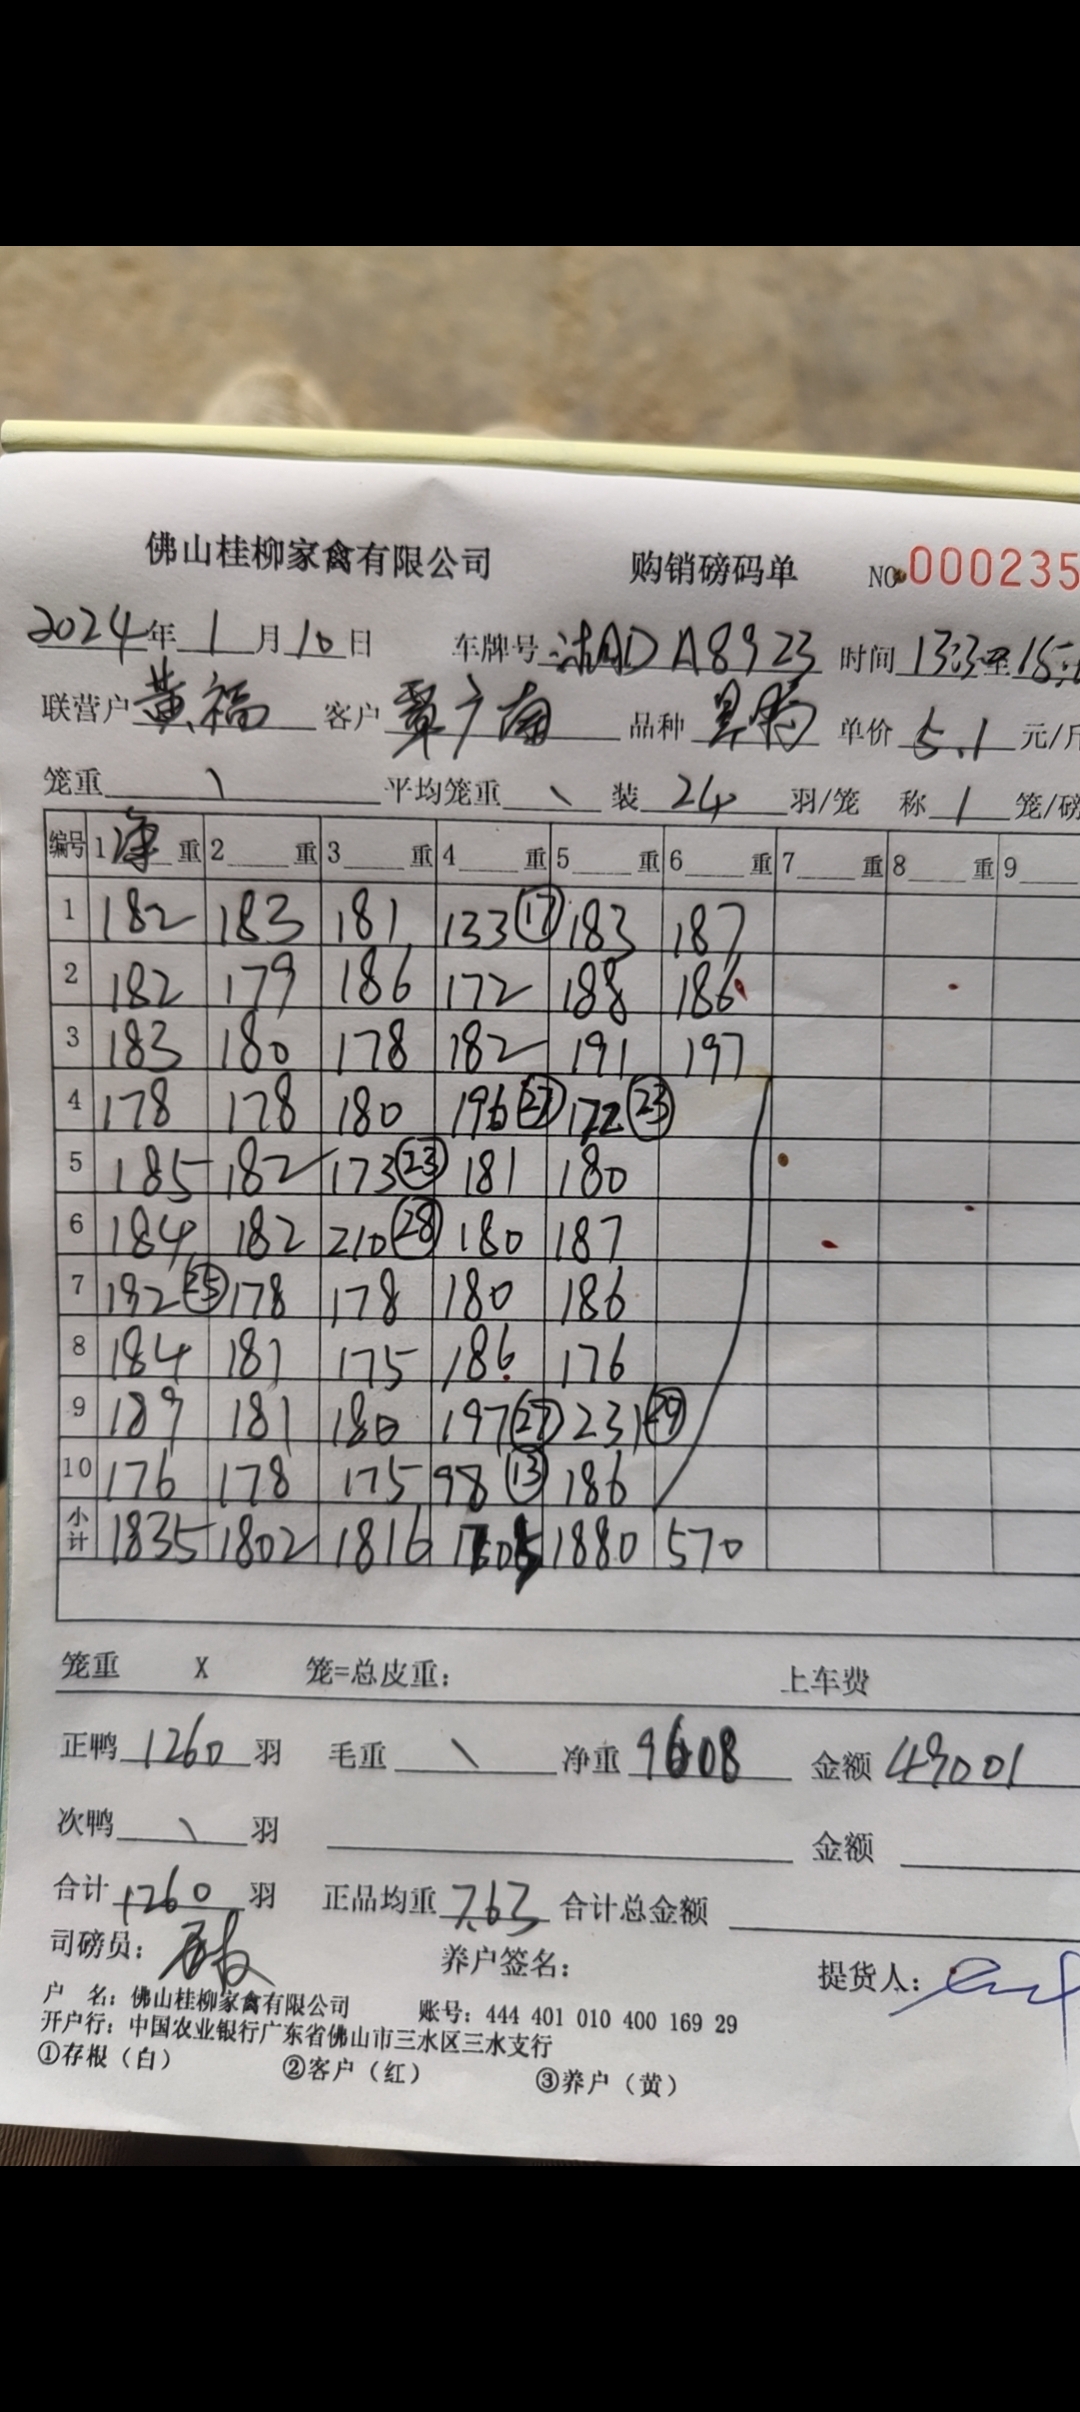 佛山桂柳家禽有限公司 购销磅码单 NO 000235
2024年 1 月 10 日 车牌号 A8923 时间 13:3 至 15:
联营户 黄福 客户 覃广 品种 单价 5.1 元/斤
笼重 \ 平均笼重 \ 装 24 羽/笼 称 1 笼/磅
编号 1 净 重 2 重 3 重 4 重 5 重 6 重 7 重 8 重 9
1 182 183 181 133 ⑰ 183 187
2 182 179 186 172 188 186
3 183 180 178 182 191 197
4 178 178 180 196 ㉗ 172 ㉓
5 185 182 173 ㉓ 181 180
6 184 182 210 ㉘ 180 187
7 192 ㉕ 178 178 180 186
8 184 181 175 186 176
9 189 181 180 197 ㉗ 231 ㉙
10 176 178 175 98 ⑬ 186
小计 1835 1802 1816 1705 1880 570
笼重 X 笼=总皮重： 上车费
正鸭 1260 羽 毛重 \ 净重 9608 金额 49001
次鸭 \ 羽 金额
合计 1260 羽 正品均重 7.63 合计总金额
司磅员： 养户签名： 提货人：
户 名：佛山桂柳家禽有限公司 账号：444 401 010 400 169 29
开户行：中国农业银行广东省佛山市三水区三水支行
①存根（白） ②客户（红） ③养户（黄）